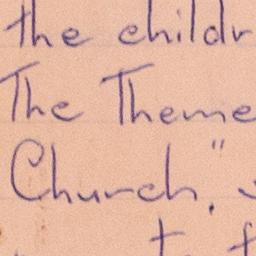 the childr
The Theme
Church."